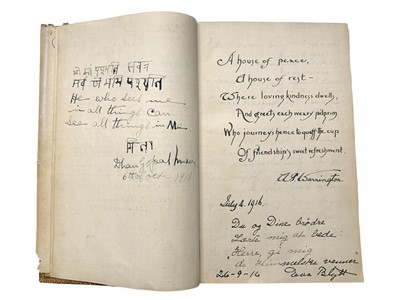 यो मां पश्यति सर्वत्र
सर्वं च मयि पश्यति
He who sees me
in all things can
see all things in Me
गीता
Dhan Gopal
6th Oct 1916
A house of peace,
A house of rest —
Where loving kindness dwells,
And greets each weary pilgrim
Who journeys hence to quaff the cup
Of friendship's sweet refreshment.
A. P. Warrington
July 4. 1916.
Du og Dine brødre
Lærte mig at bede:
"Herre, gi mig
de Himmelske venner"
26-9-16